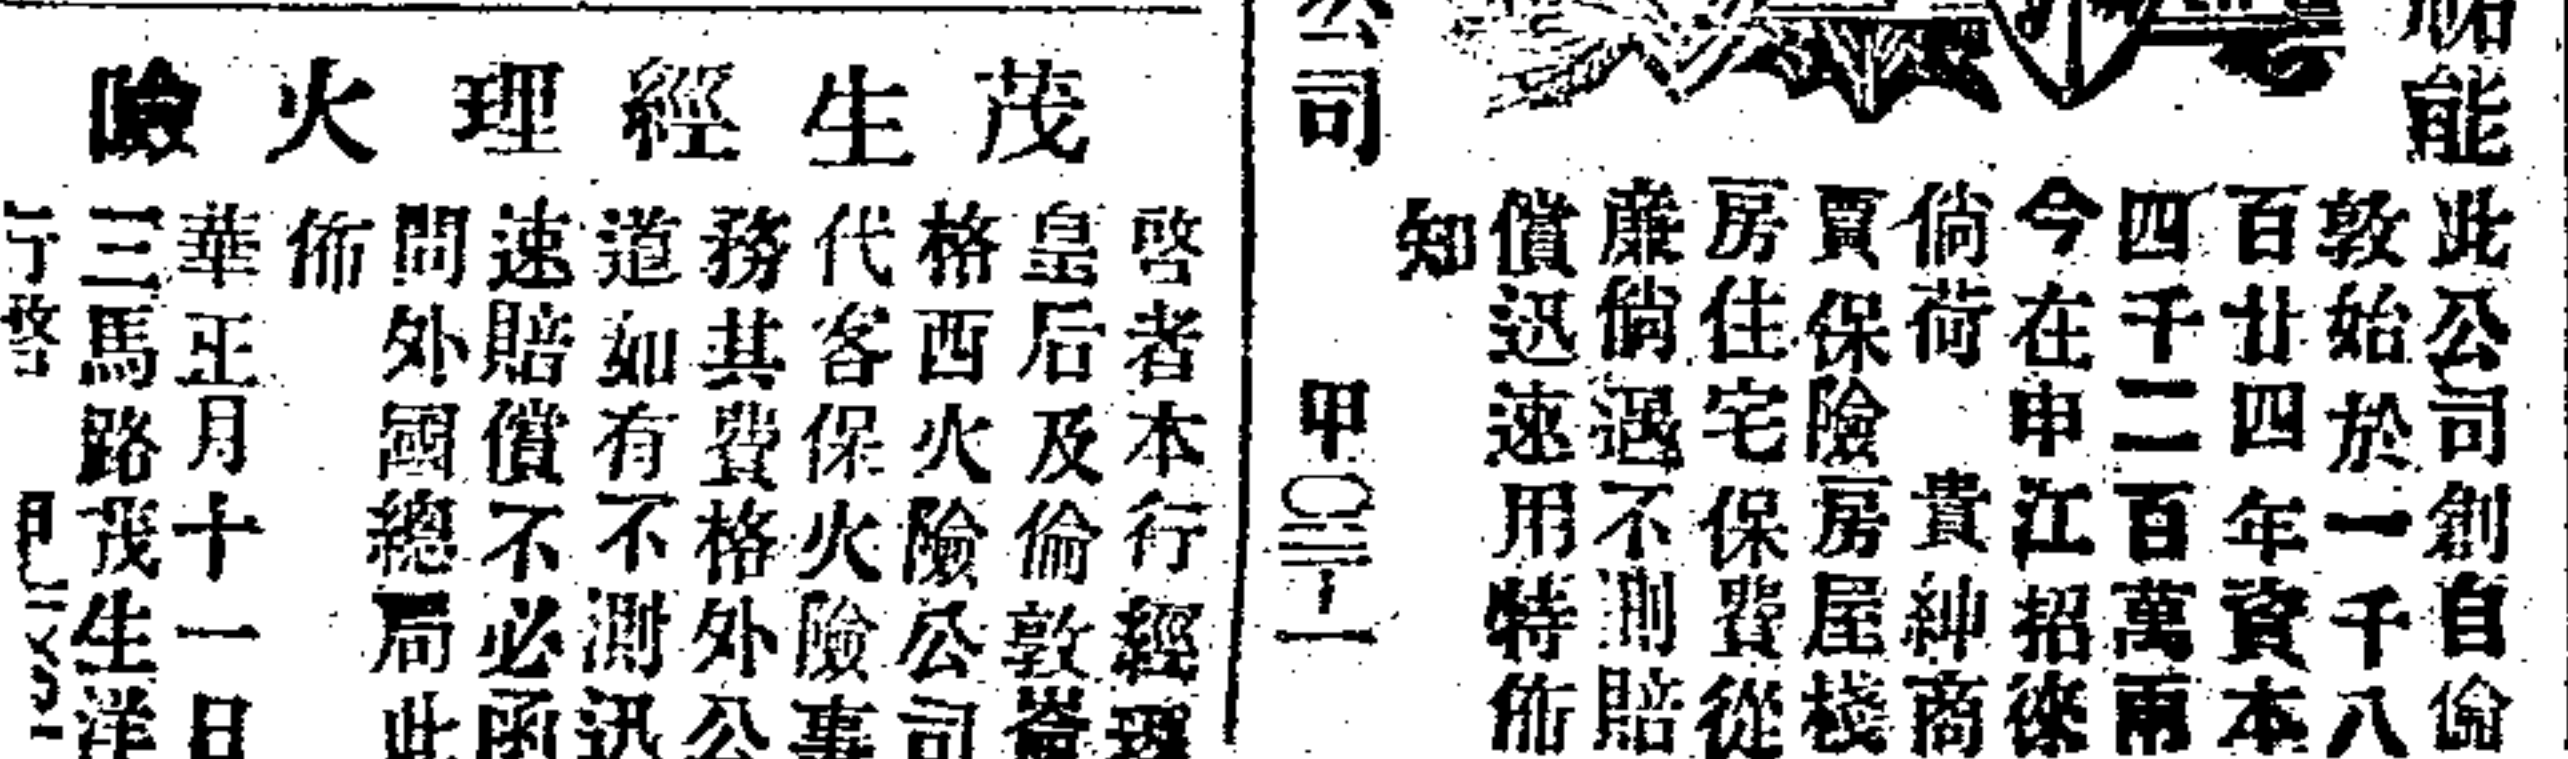 能
此公司創自倫
敦始於一千八
百廿四年資本
四千二百萬兩
今在申江招徠
倘荷 貴紳商
賈保險房屋棧
房住宅保費從
廉倘遇不測賠
償迅速用特佈
知
公司
甲〇三十一
茂生經理火險
啓者本行經理
皇后及倫敦
格西火險公司
代客保火險事
務其費格外公
道如有不測迅
速賠償不必函
問外國總局此
佈
華正月十一日
三馬路茂生洋
行啓